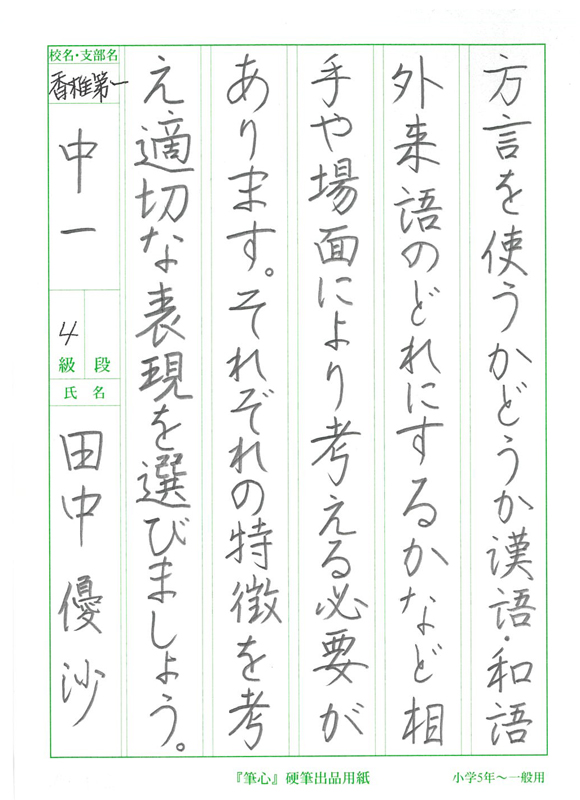 方言を使うかどうか漢語・和語
外来語のどれにするかなど相
手や場面により考える必要が
あります。それぞれの特徴を考
え適切な表現を選びましょう。
校名・支部名
香椎第一
中一
4
級 段
氏 名
田中 優沙
『筆心』硬筆出品用紙
小学5年〜一般用